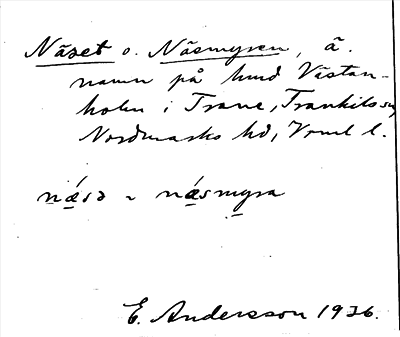 Näset o. Näsmyren, ä.
namn på hmd Västan-
holm i Trane, Trankils sn,
Nordmarks hd, Vrml l.
näsə ~ näsmyra
E. Andersson 1936.